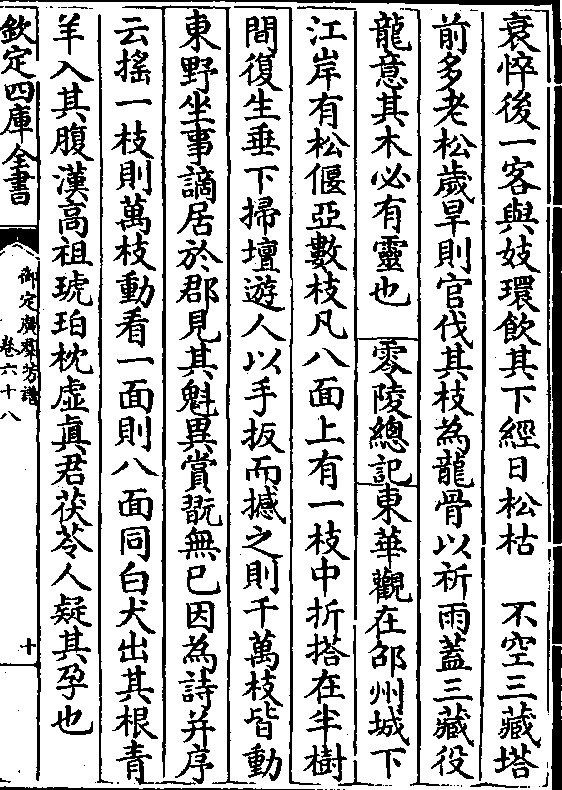 衰悴後一客與妓環飲其下經日松枯　不空三藏塔
前多老松歲旱則官伐其枝為龍骨以祈雨葢三藏役
龍意其木必有靈也　零陵總記東華觀在邵州城下
江岸有松偃亞數枝凡八面上有一枝中折搭在半樹
間復生垂下掃壇遊人以手扳而撼之則千萬枝皆動
東野坐事謫居於郡見其魁異賞翫無已因為詩并序
云搖一枝則萬枝動看一面則八面同白犬出其根青
羊入其腹漢高祖琥珀枕虛眞君茯苓人疑其孕也
欽定四庫全書
御定廣羣芳譜
卷六十八
十